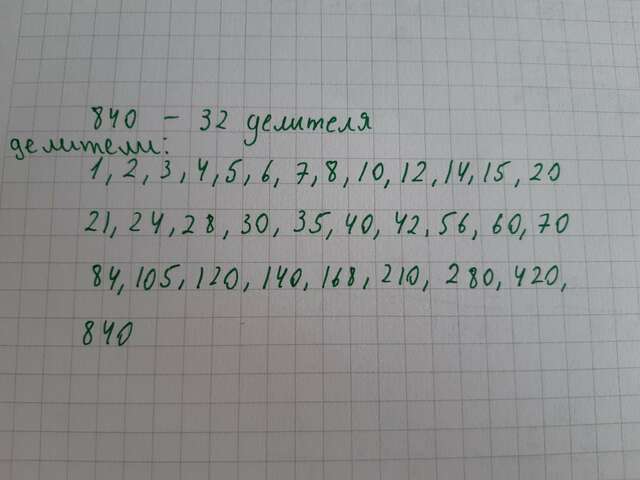 840 - 32 делителя
делители:
1, 2, 3, 4, 5, 6, 7, 8, 10, 12, 14, 15, 20
21, 24, 28, 30, 35, 40, 42, 56, 60, 70
84, 105, 120, 140, 168, 210, 280, 420,
840